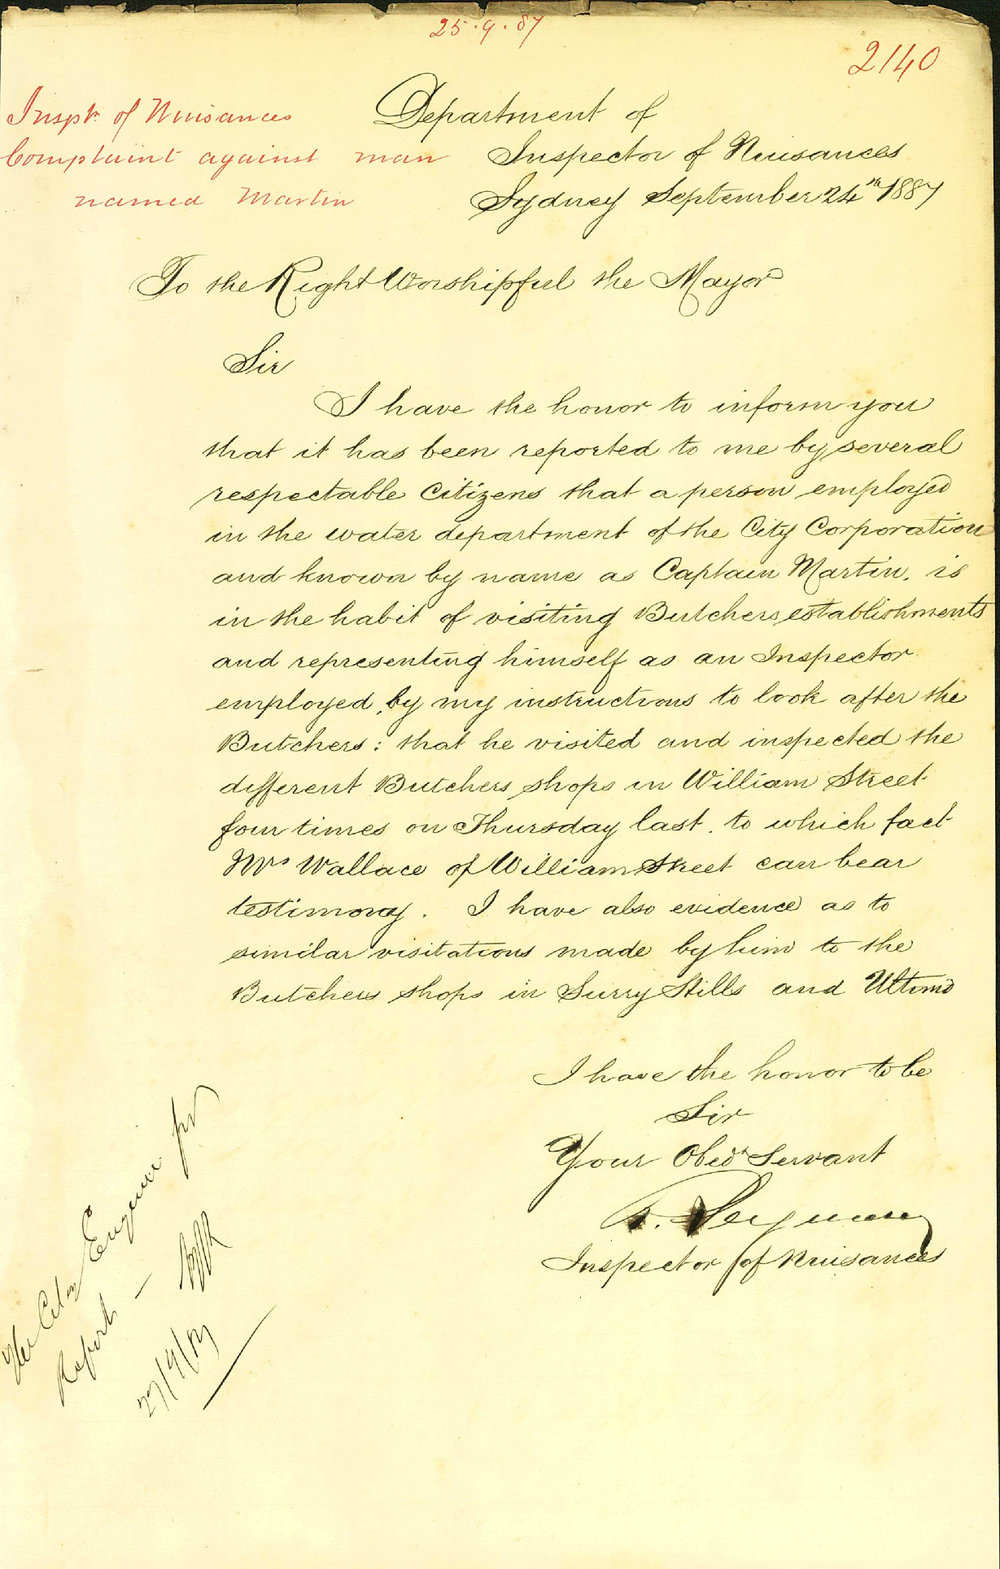 25.9.87
2140
Inspr. of Nuisances
Complaint against man
named Martin
Department of
Inspector of Nuisances
Sydney September 24th 1887
To the Right Worshipful the Mayor
Sir
I have the honor to inform you
that it has been reported to me by several
respectable Citizens that a person employed
in the water department of the City Corporation
and known by name as Captain Martin, is
in the habit of visiting Butchers establishments
and representing himself as an Inspector
employed by my instructions to look after the
Butchers; that he visited and inspected the
different Butchers shops in William Street
four times on Thursday last, to which fact
Mrs Wallace of William Street can bear
testimony. I have also evidence as to
similar visitations made by him to the
Butchers shops in Surry Hills and Ultimo
I have the honor to be
Sir
Your Obedt Servant
Seymour
Inspector of Nuisances
The City Engineer for
Report —
27/9/87